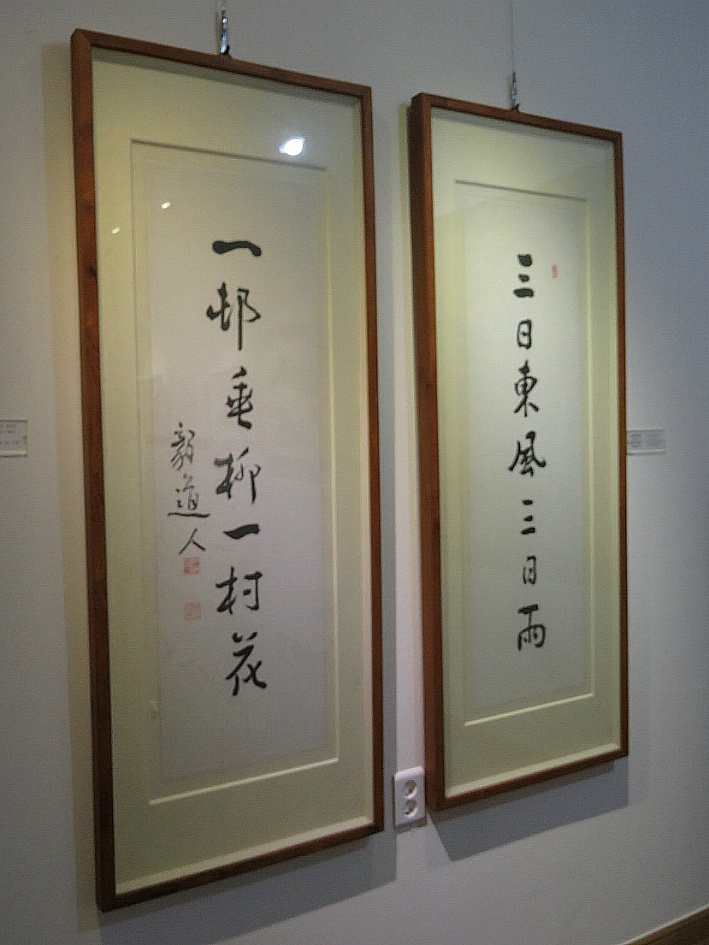 三日東風三日雨
一邨垂柳一村花
毅道人